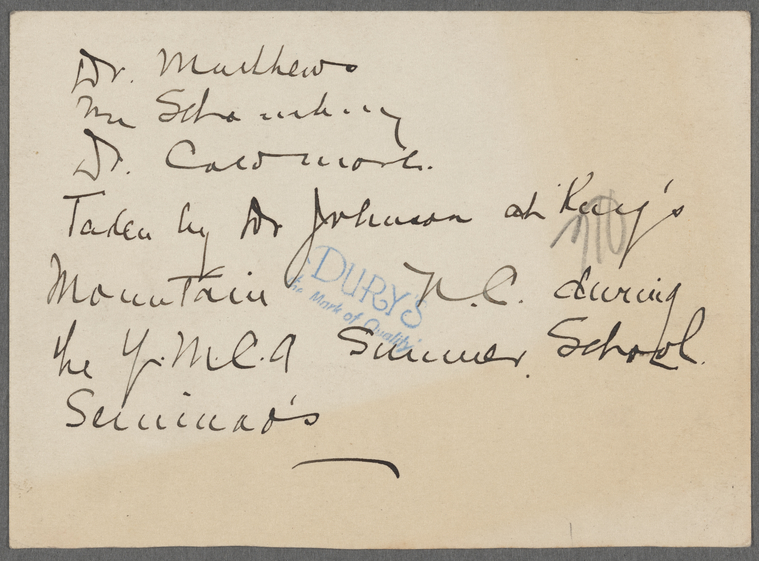 Dr. Matthews
Mr Schomburg
Dr. Cawmore.
Taken by Dr Johnson at King's
Mountain N.C. during
the Y.M.C.A Summer School
Seminar's
DURY'S
the Mark of Quality